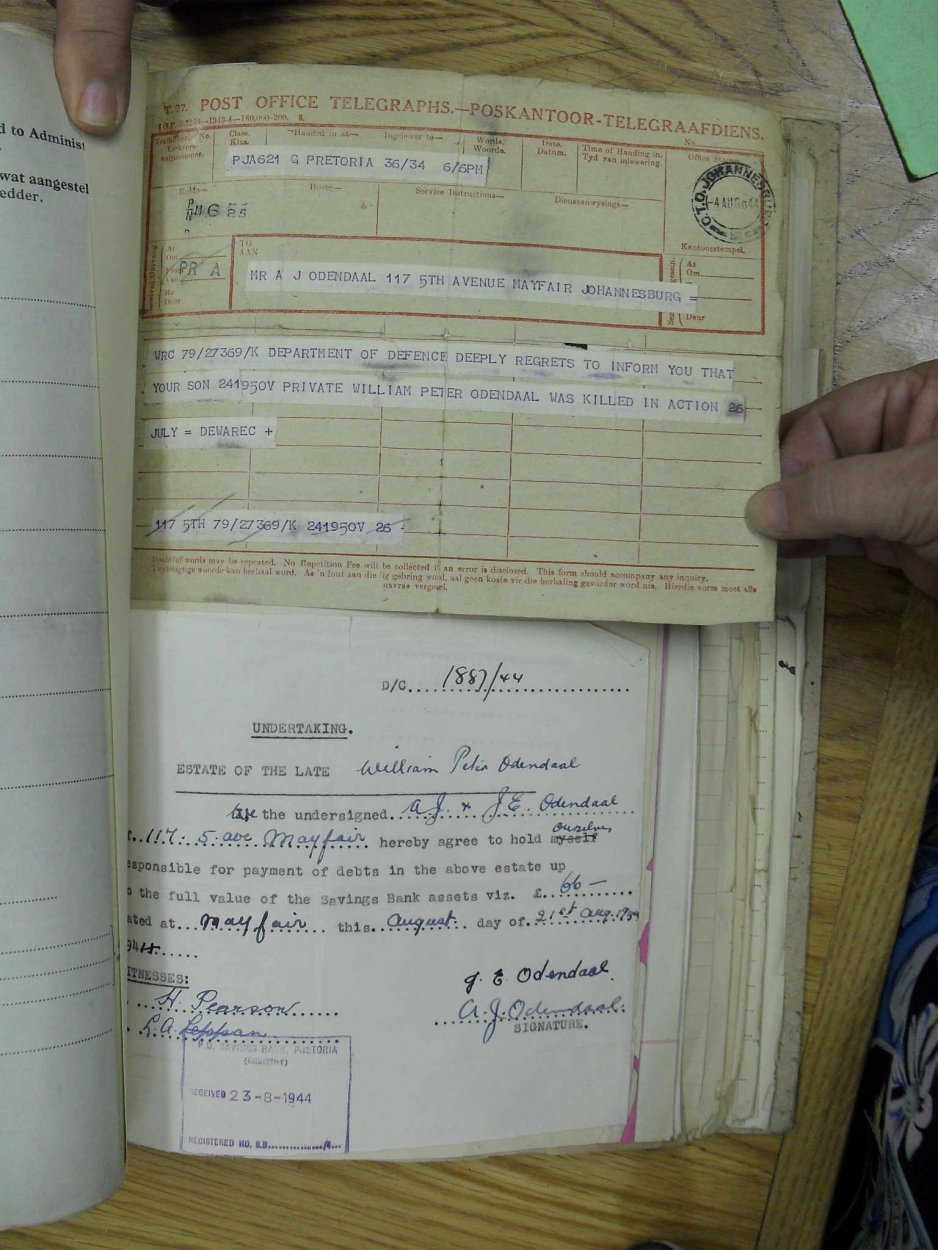 d to Administ
wat aangestel
edder.
T.27. POST OFFICE TELEGRAPHS.—POSKANTOOR-TELEGRAAFDIENS.
Class. Klas.
Handed in at— Ingelewer te—
Words. Woorde.
Date. Datum.
Time of Handing in. Tyd van inlewering.
No.
Office Stamp.
PJA621 G PRETORIA 36/34 6/6PM
Route—
Service Instructions—
Diensaanwysings—
G 25
C.T.O. JOHANNESBURG
4 AUG 44
Kantoorstempel.
At
Om
PR A
By
Deur
TO
AAN
MR A J ODENDAAL 117 5TH AVENUE MAYFAIR JOHANNESBURG =
At
Om
Deur
WRC 79/27369/K DEPARTMENT OF DEFENCE DEEPLY REGRETS TO INFORM YOU THAT
YOUR SON 241950V PRIVATE WILLIAM PETER ODENDAAL WAS KILLED IN ACTION 26
JULY = DEWAREC +
117 5TH 79/27369/K 241950V 26
Doubtful words may be repeated. No Repetition Fee will be collected if an error is disclosed. This form should accompany any inquiry.
Twyfelagtige woorde kan herhaal word. As 'n fout aan die lig gebring word, sal geen koste vir die herhaling gevorder word nie. Hierdie vorm moet alle
navrae vergesel.
D/C....1887/44
UNDERTAKING.
ESTATE OF THE LATE William Peter Odendaal
We the undersigned A.J. & J.E. Odendaal
117. 5. ave Mayfair hereby agree to hold myself ourselves
esponsible for payment of debts in the above estate up
o the full value of the Savings Bank assets viz. £ 66 —
ated at Mayfair this August day of 21st Aug.
944
ITNESSES:
J. E. Odendaal
H. Pearson
A. J. Odendaal
L.A. Leppan
SIGNATURE.
P.O. SAVINGS BANK, PRETORIA
(REGISTRY)
RECEIVED 23-8-1944
REGISTERED NO. S.B.